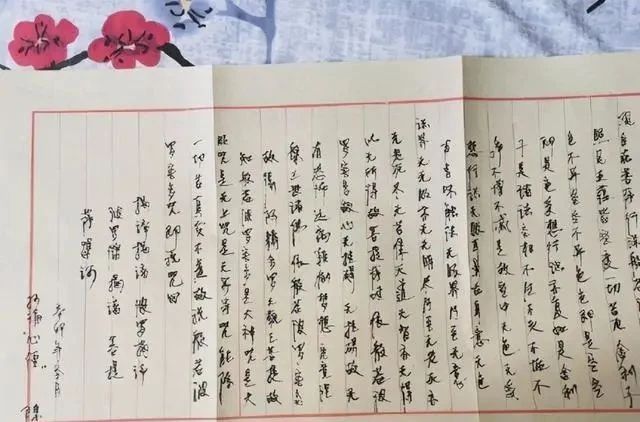 观自在菩萨行深般若
照见五蕴皆空度一切苦厄舍利子
色不异空空不异色色即是空空
即是色受想行识亦复如是舍利
子是诸法空相不生不灭不垢不
净不增不减是故空中无色无受
想行识无眼耳鼻舌身意无色
声香味触法无眼界乃至无意
识界无无明亦无无明尽乃至无老死亦
无老死尽无苦集灭道无智亦无得
以无所得故菩提萨埵依般若波
罗蜜多故心无挂碍无挂碍故无
有恐怖远离颠倒梦想究竟涅
槃三世诸佛依般若波罗蜜多
故得阿耨多罗三藐三菩提故
知般若波罗蜜多是大神咒是大
明咒是无上咒是无等等咒能除
一切苦真实不虚故说般若波
罗蜜多咒即说咒曰
揭谛揭谛波罗揭谛
波罗僧揭谛菩提
萨婆诃
辛卯年月
“心经”